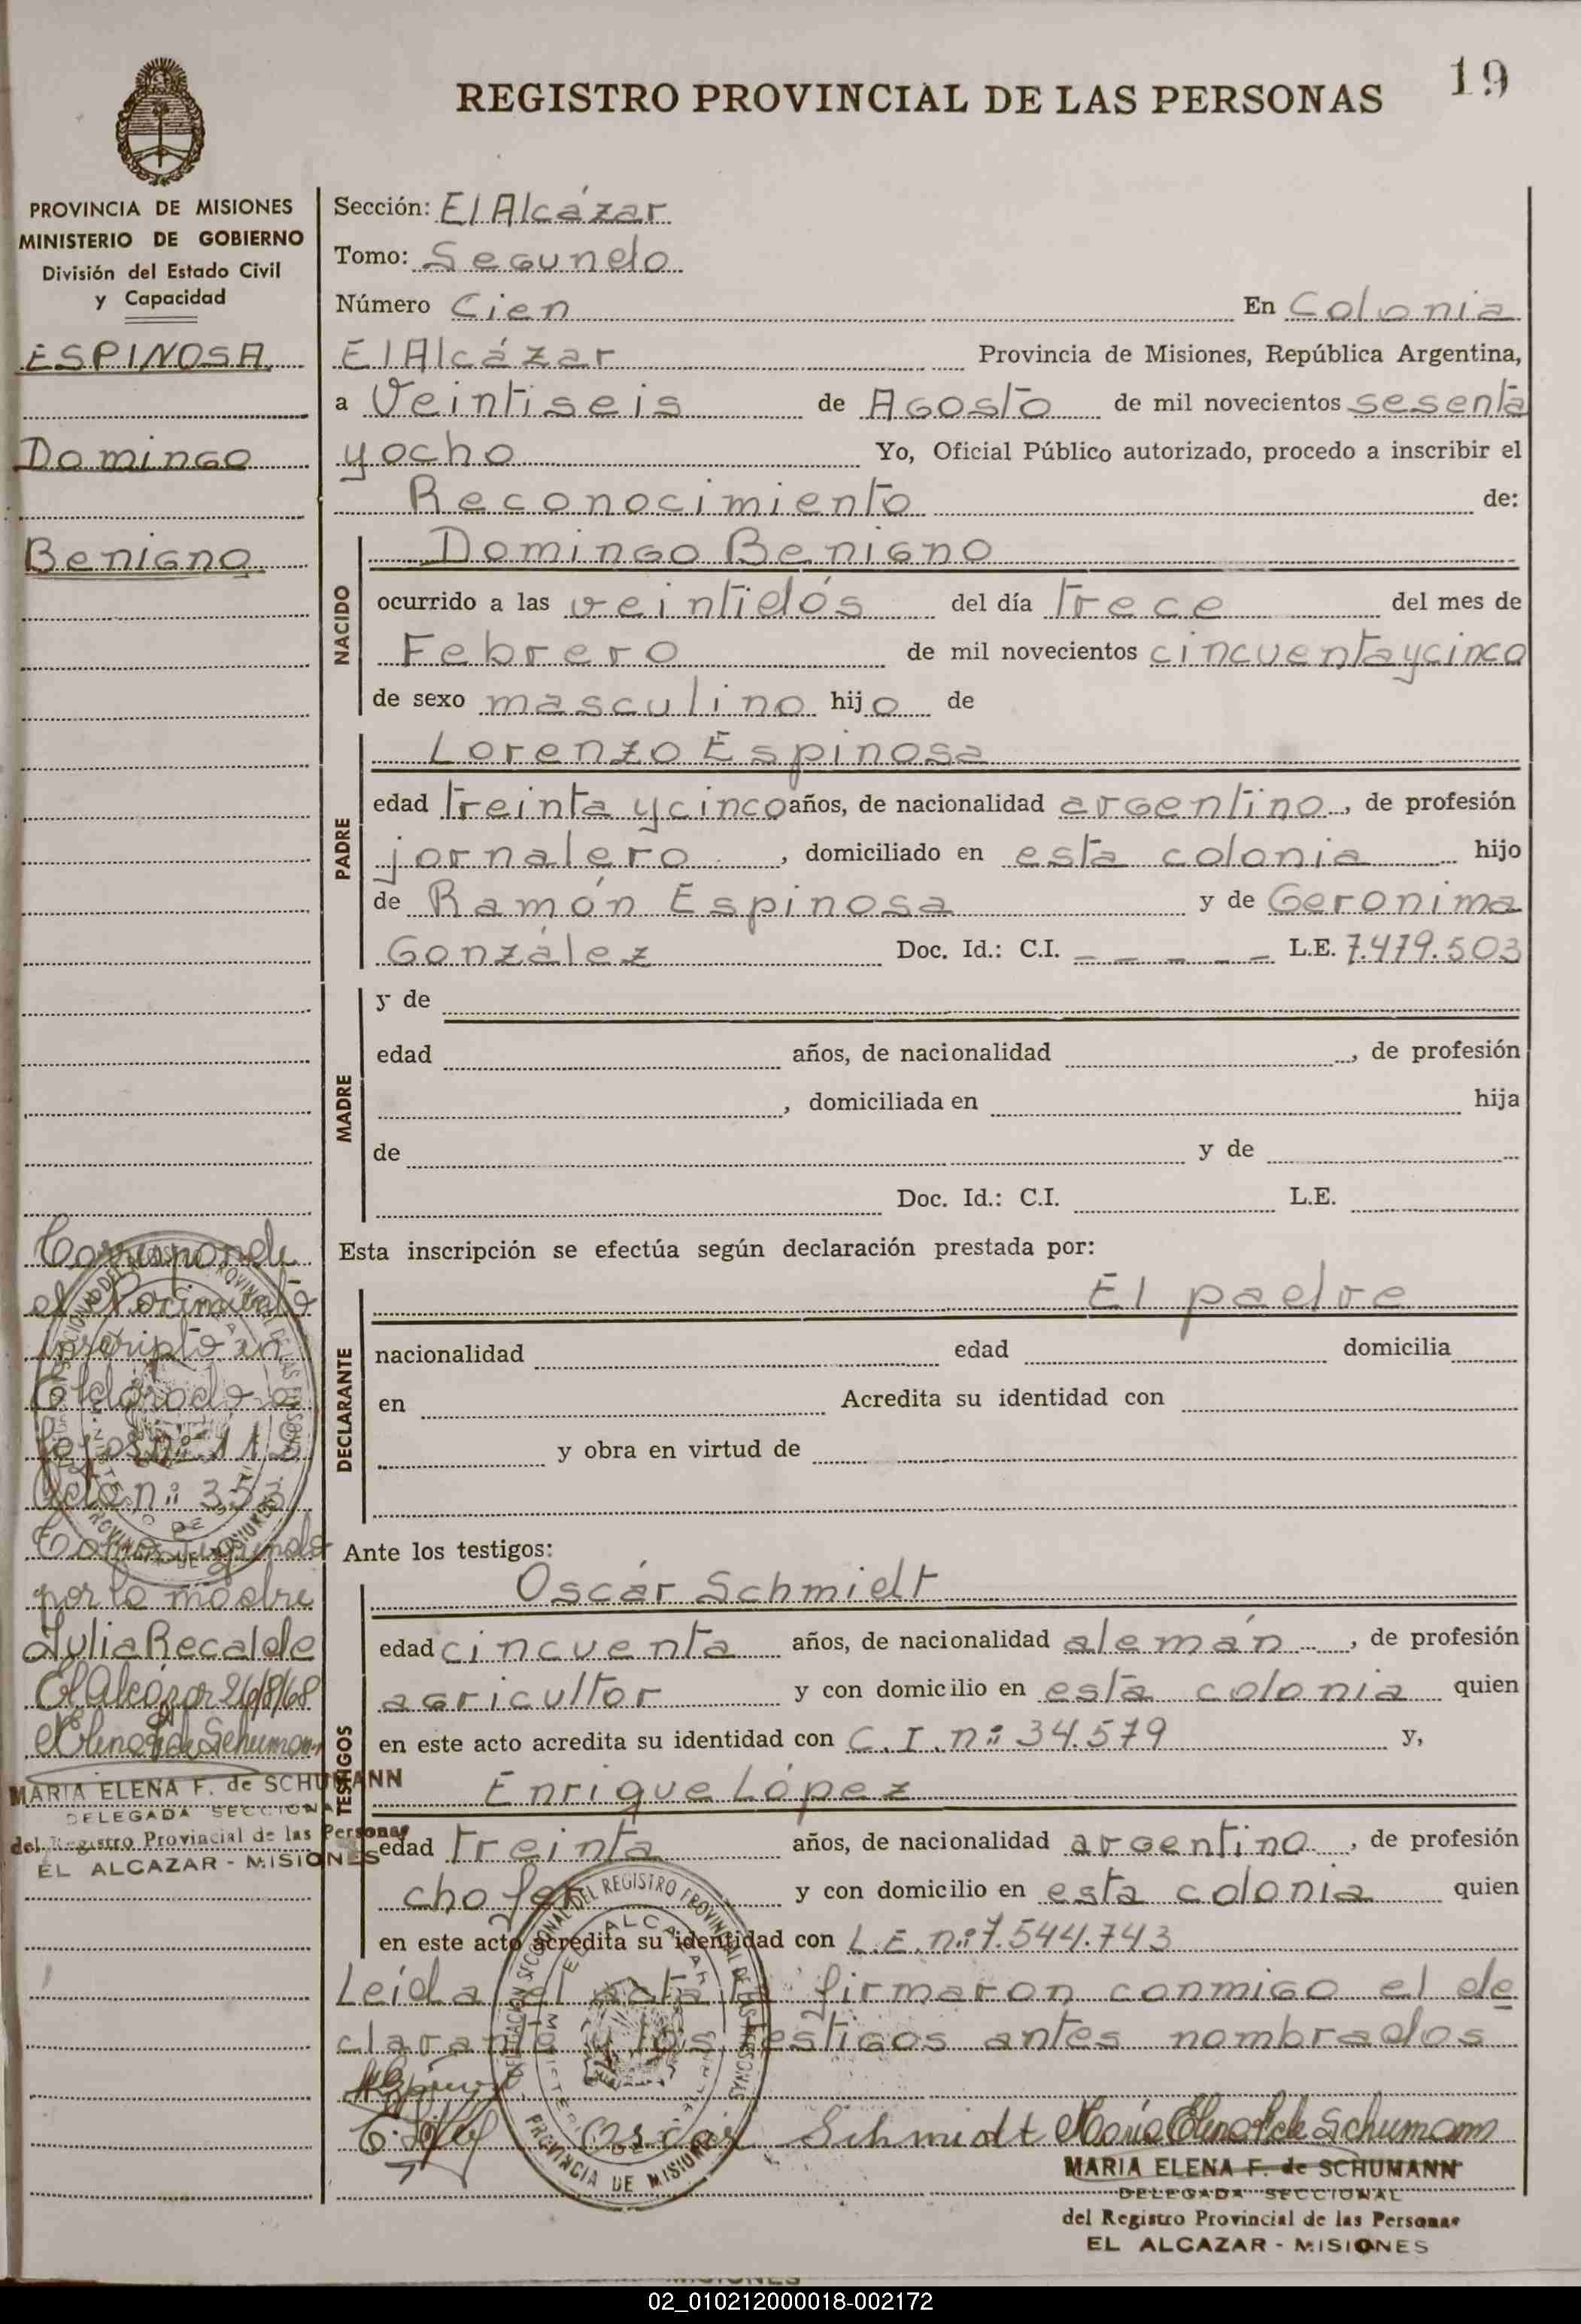 19
REGISTRO PROVINCIAL DE LAS PERSONAS
PROVINCIA DE MISIONES
MINISTERIO DE GOBIERNO
División del Estado Civil
y Capacidad
ESPINOSA
Domingo
Benigno
Sección: El Alcázar
Tomo: Segundo
Número Cien En Colonia
El Alcázar Provincia de Misiones, República Argentina,
a Veintiseis de Agosto de mil novecientos sesenta
y ocho Yo, Oficial Público autorizado, procedo a inscribir el
Reconocimiento de:
NACIDO
Domingo Benigno
ocurrido a las veintidós del día trece del mes de
Febrero de mil novecientos cincuenta y cinco
de sexo masculino hijo de
PADRE
Lorenzo Espinosa
edad treinta y cinco años, de nacionalidad argentino, de profesión
jornalero, domiciliado en esta colonia hijo
de Ramón Espinosa y de Geronima
González Doc. Id.: C.I. _ _ _ _ _ L.E. 7.479.503
MADRE
y de
edad años, de nacionalidad , de profesión
, domiciliada en hija
de y de
Doc. Id.: C.I. L.E.
Esta inscripción se efectúa según declaración prestada por:
DECLARANTE
El padre
nacionalidad edad domicilia
en Acredita su identidad con
y obra en virtud de
Ante los testigos:
TESTIGOS
Oscár Schmidt
edad cincuenta años, de nacionalidad alemán, de profesión
agricultor y con domicilio en esta colonia quien
en este acto acredita su identidad con C.I. nº: 34.579 y,
Enrique López
edad treinta años, de nacionalidad argentino, de profesión
chofer y con domicilio en esta colonia quien
en este acto acredita su identidad con L.E. nº: 7.544.743
Leída el acta la firmaron conmigo el de
clarante y los testigos antes nombrados
Oscar Schmidt María Elena F. de Schumann
MARIA ELENA F. de SCHUMANN
DELEGADA SECCIONAL
del Registro Provincial de las Personas
EL ALCAZAR - MISIONES
Corresponde
inscripto en
Eldorado a
Acta nº: 353
Tomo segundo
por la madre
Julia Recalde
El Alcázar 26/8/68
MARIA ELENA F. de SCHUMANN
DELEGADA SECCIONAL
del Registro Provincial de las Personas
EL ALCAZAR - MISIONES
DELEGACION SECCIONAL DEL REGISTRO PROVINCIAL DE LAS PERSONAS
EL ALCAZAR
PROVINCIA DE MISIONES
02_010212000018-002172